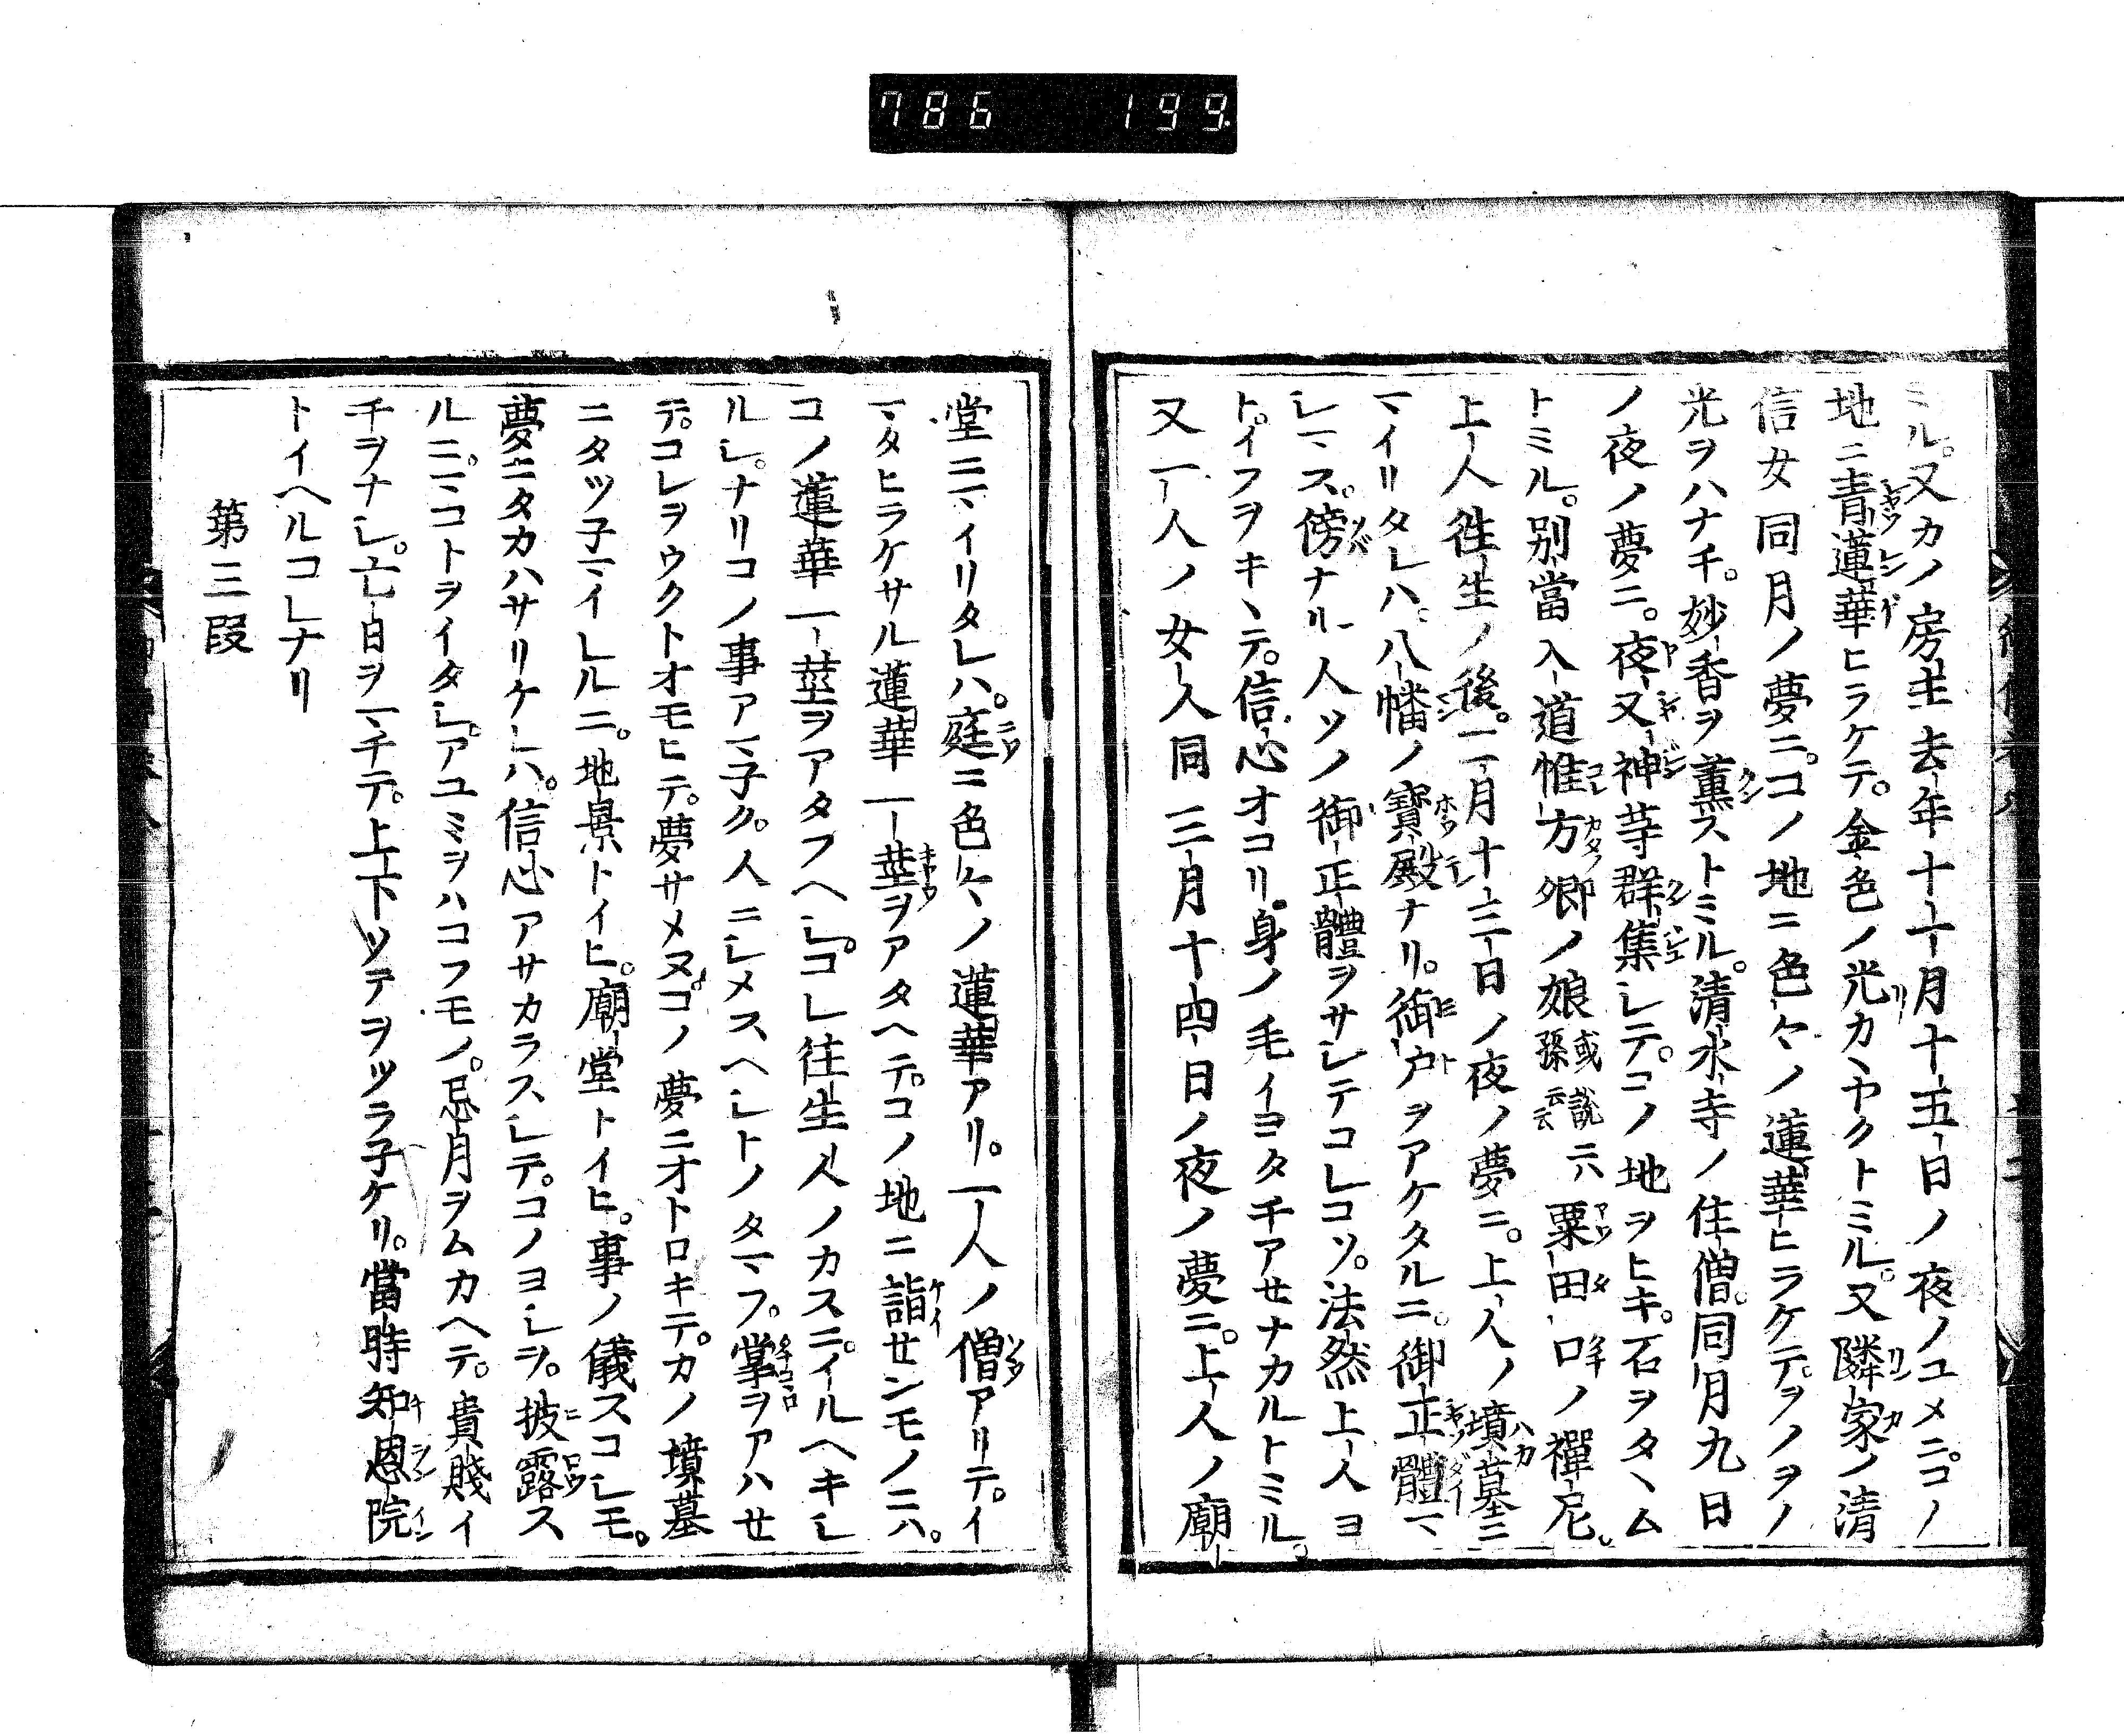 786 199
ミル。又カノ房主去年十一月十五日ノ夜ノユメニ。コノ
地ニ青蓮華ヒラケテ。金色ノ光カヽヤクトミル。又隣家ノ清
信女同月ノ夢ニ。コノ地ニ色々ノ蓮華ヒラケテ。ヲノヲノ
光ヲハナチ。妙香ヲ薫ストミル。清水寺ノ住僧。同月九日
ノ夜ノ夢ニ。夜叉神等群集シテ。コノ地ヲヒキ。石ヲタヽム
トミル。別當入道惟方卿ノ娘或説ニハ孫云云粟田口ノ禪尼。
上人往生ノ後。二月十三日ノ夜ノ夢ニ。上人ノ墳墓ニ
マイリタレハ。八幡ノ寶殿ナリ。御戸ヲアケタルニ。御正體マ
シマス。傍ナル人ソノ御正體ヲサシテコレコソ。法然上人ヨ
ト。イフヲキヽテ。信心オコリ。身ノ毛イヨタチアセナカルトミル。
又一人ノ女人同三月十四日ノ夜ノ夢ニ。上人ノ廟
堂ニマイリタレハ。庭ニ色々ノ蓮華アリ。一人ノ僧アリテ。イ
マタヒラケサル蓮華一莖ヲアタヘテ。コノ地ニ詣センモノニハ。
コノ蓮華一莖ヲアタフヘシ。コレ往生人ノカスニ。イルヘキシ
ルシ。ナリコノ事アマ子ク。人ニシメスヘシトノタマフ。掌ヲアハセ
テ。コレヲウクトオモヒテ。夢サメヌ。コノ夢ニオトロキテ。カノ墳墓
ニタツ子マイレルニ。地景トイヒ。廟堂トイヒ。事ノ儀スコシモ。
夢ニタカハサリケレハ。信心アサカラスシテ。コノヨシヲ。披露ス
ルニ。マコトヲイタシ。アユミヲハコフモノ。忌月ヲムカヘテ。貴賤イ
チヲナシ。亡日ヲマチテ。上下ソテヲツラ子ケリ。當時知恩院
トイヘルコレナリ
第三段